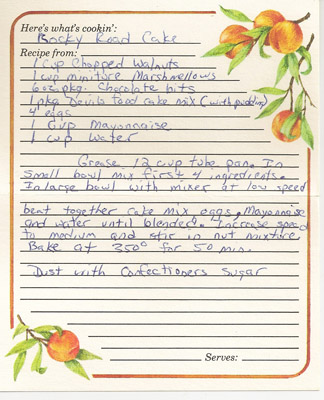 Here's what's cookin':
Rocky Road Cake
Recipe from:
1 Cup Chopped Walnuts
1 cup miniture Marshmellows
6oz pkg. Chocolate bits
1 pkg Devils food cake mix (with pudding)
4 eggs
1 Cup Mayonnaise
1 cup water
Grease 12 cup tube pan. In
Small bowl mix first 4 ingredients.
In large bowl with mixer at low speed
beat together cake mix eggs, Mayonnaise
and water until blended. Increase speed
to medium and stir in nut mixture
Bake at 350° for 50 min.
Dust with Confectioners Sugar
Serves: